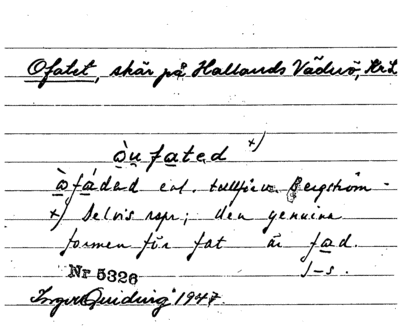 Ofatet, skär på Hallands Väderö, Kr. L
òu fated x)
ò fádad enl. tullförv. Bergström -
x) Delvis rspr; den genuina
formen för fat är fad.
J-s.
Nr 5326
Inger Quiding 1947.